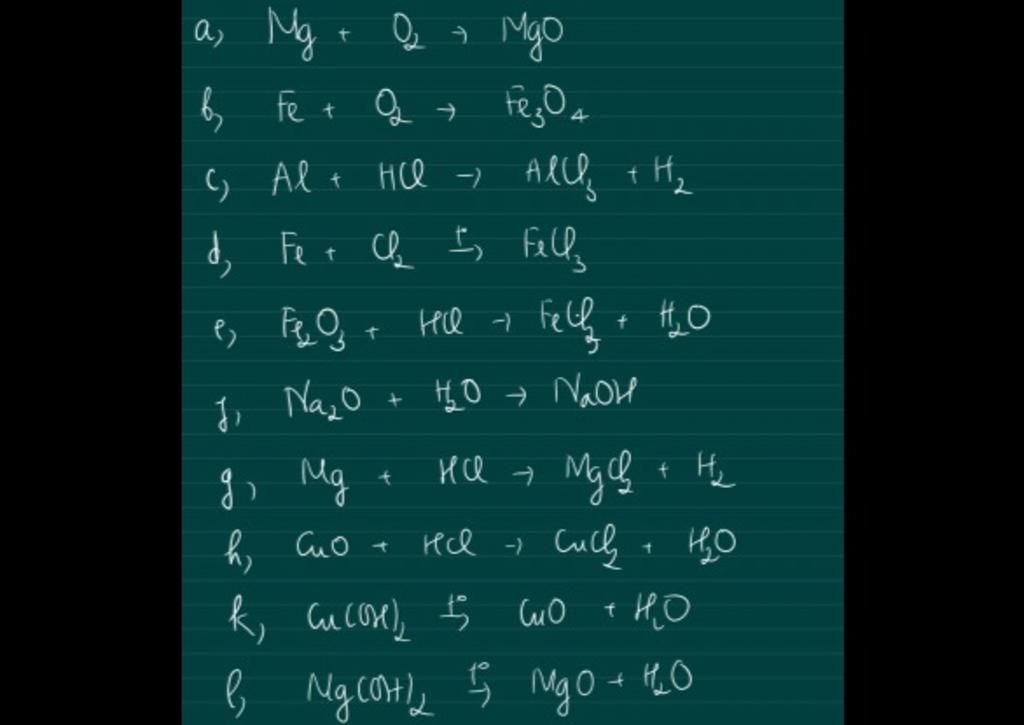 a, Mg + O₂ → MgO
b, Fe + O₂ → Fe₃O₄
c, Al + HCl → AlCl₃ + H₂
d, Fe + Cl₂ →(t°) FeCl₃
e, Fe₂O₃ + HCl → FeCl₃ + H₂O
f, Na₂O + H₂O → NaOH
g, Mg + HCl → MgCl₂ + H₂
h, CuO + HCl → CuCl₂ + H₂O
k, Cu(OH)₂ →(t°) CuO + H₂O
l, Mg(OH)₂ →(t°) MgO + H₂O